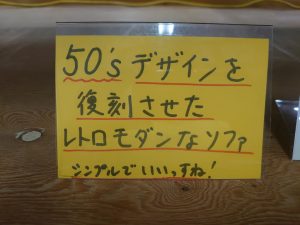 50'sデザインを
復刻させた
レトロモダンなソファ
シンプルでいいっすね!